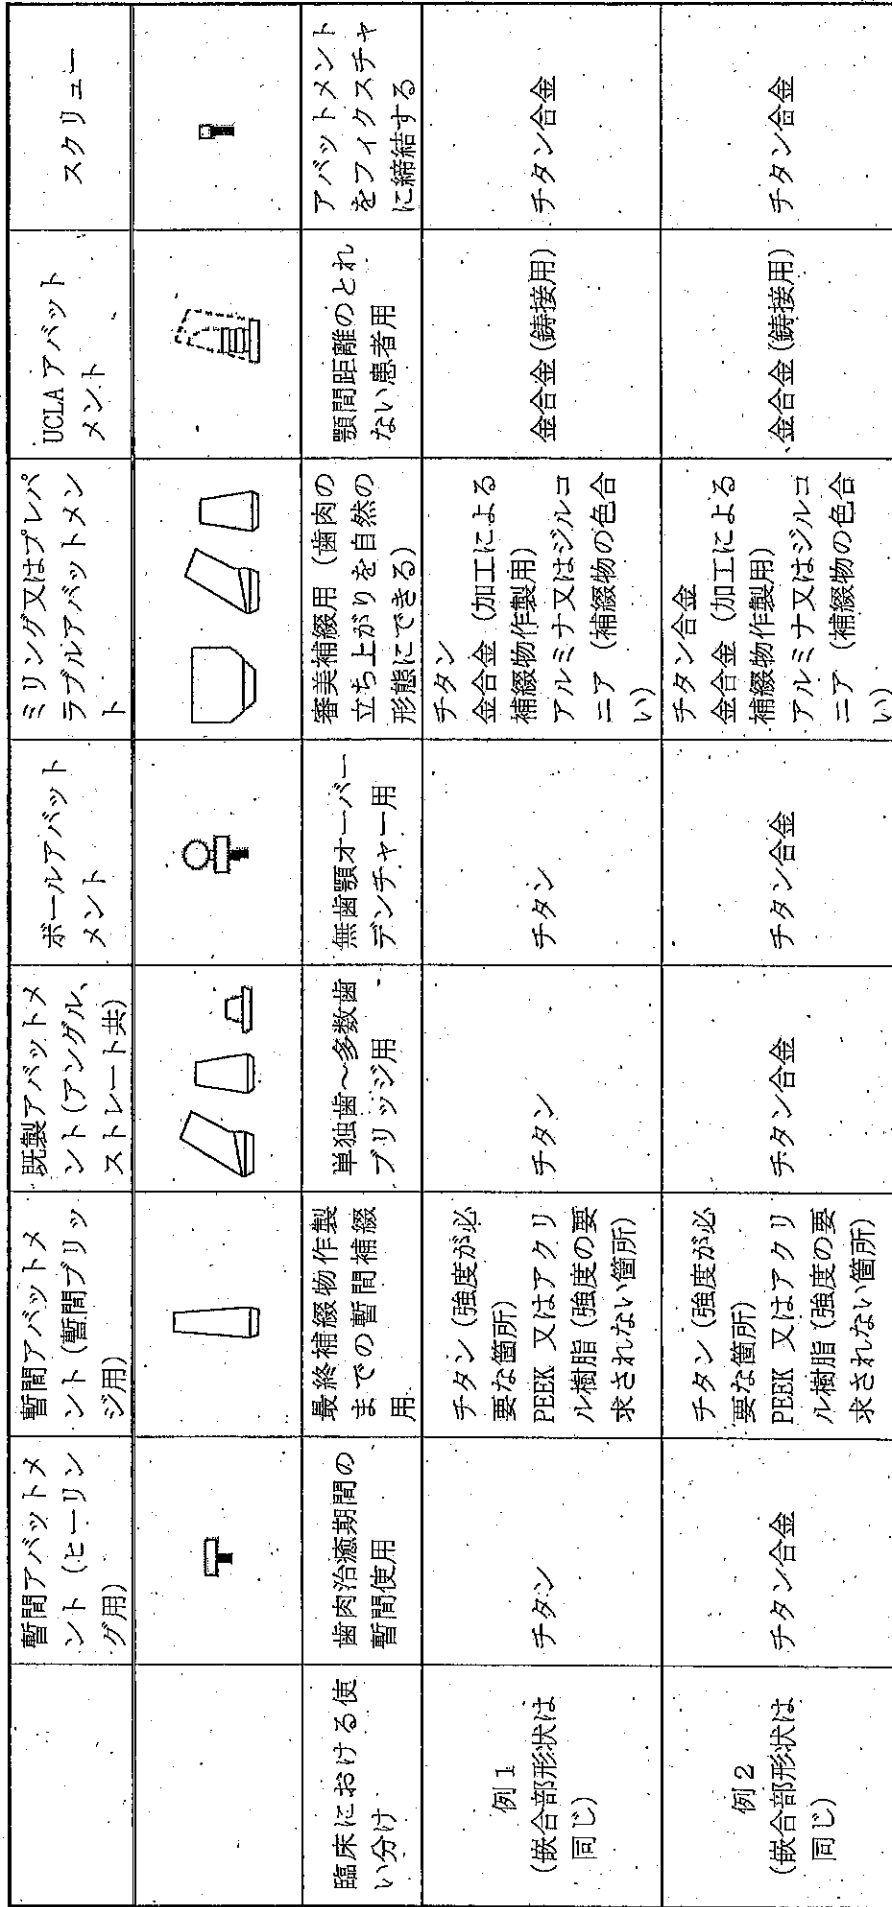 暫間アバットメ
ント（ヒーリン
グ用）
暫間アバットメ
ント（暫間ブリッ
ジ用）
既製アバットメ
ント（アングル、
ストレート共）
ボールアバット
メント
ミリング又はプレパ
ラブルアバットメン
ト
UCLAアバット
メント
スクリュー
臨床における使
い分け
歯肉治癒期間の
暫間使用
最終補綴物作製
までの暫間補綴
用
単独歯～多数歯
ブリッジ用
無歯顎オーバー
デンチャー用
審美補綴用（歯肉の
立ち上がりを自然の
形態にできる）
顎間距離のとれ
ない患者用
アバットメント
をフィクスチャ
に締結する
例1
（嵌合部形状は
同じ）
チタン
チタン（強度が必
要な箇所）
PEEK 又はアクリ
ル樹脂（強度の要
求されない箇所）
チタン
チタン
チタン
金合金（加工による
補綴物作製用）
アルミナ又はジルコ
ニア（補綴物の色合
い）
金合金（鋳接用）
チタン合金
例2
（嵌合部形状は
同じ）
チタン合金
チタン（強度が必
要な箇所）
PEEK 又はアクリ
ル樹脂（強度の要
求されない箇所）
チタン合金
チタン合金
チタン合金
金合金（加工による
補綴物作製用）
アルミナ又はジルコ
ニア（補綴物の色合
い）
金合金（鋳接用）
チタン合金